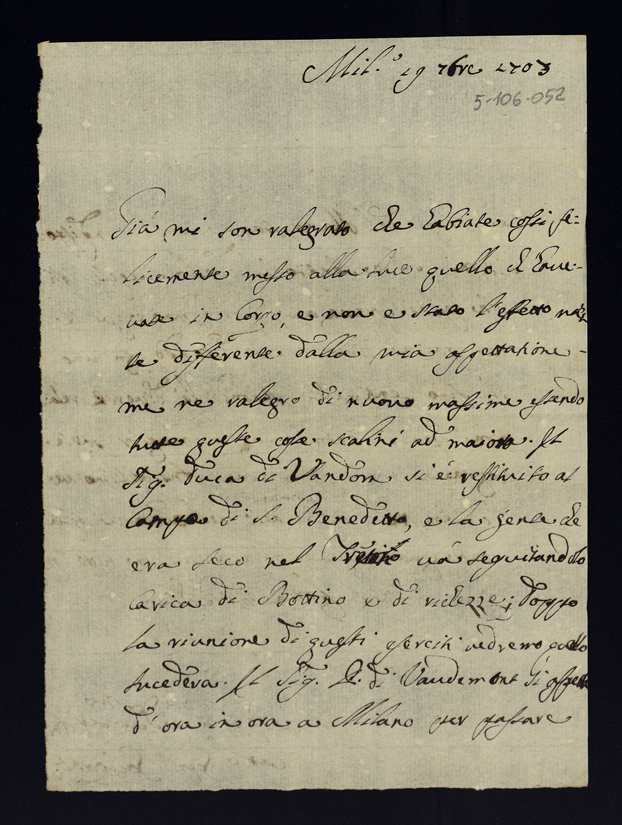 Mil.º 19 7bre 1703
5-106-052
Già mi son ralegrato che habiate cossi fe-
licemente messo alla luce quello ch'have-
vate in Corpo, e non e stato l'effetto
te differente dalla mia aspettatione -
me ne ralegro di nuovo massime essendo
tutte queste cose scalini ad maiora. Il
Sig. Duca di Vandom si è restituito al
Campo di S. Benedetto, e la gente che
era seco nel và seguitandolo
carica di Bottino e di richezze; doppo
la riunione di questi eserciti vedremo quello
succederà. Il Sig. P. di Vaudemont si aspetta
d'ora in ora a Milano per passare